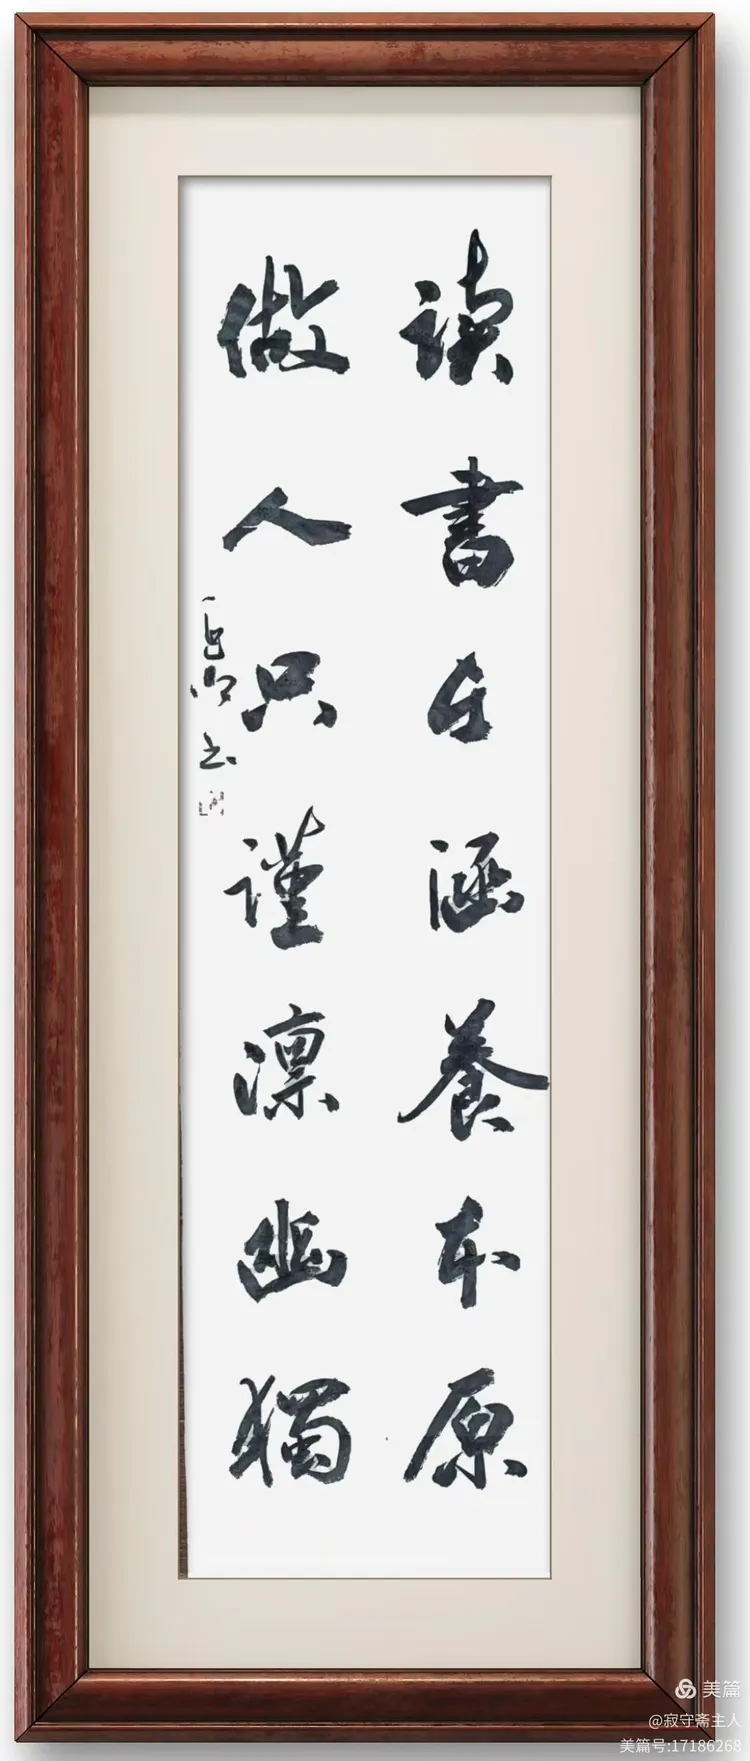 读書在涵養本原
做人只謹凛幽獨
美篇
@寂守斋主人
美篇号:17186268